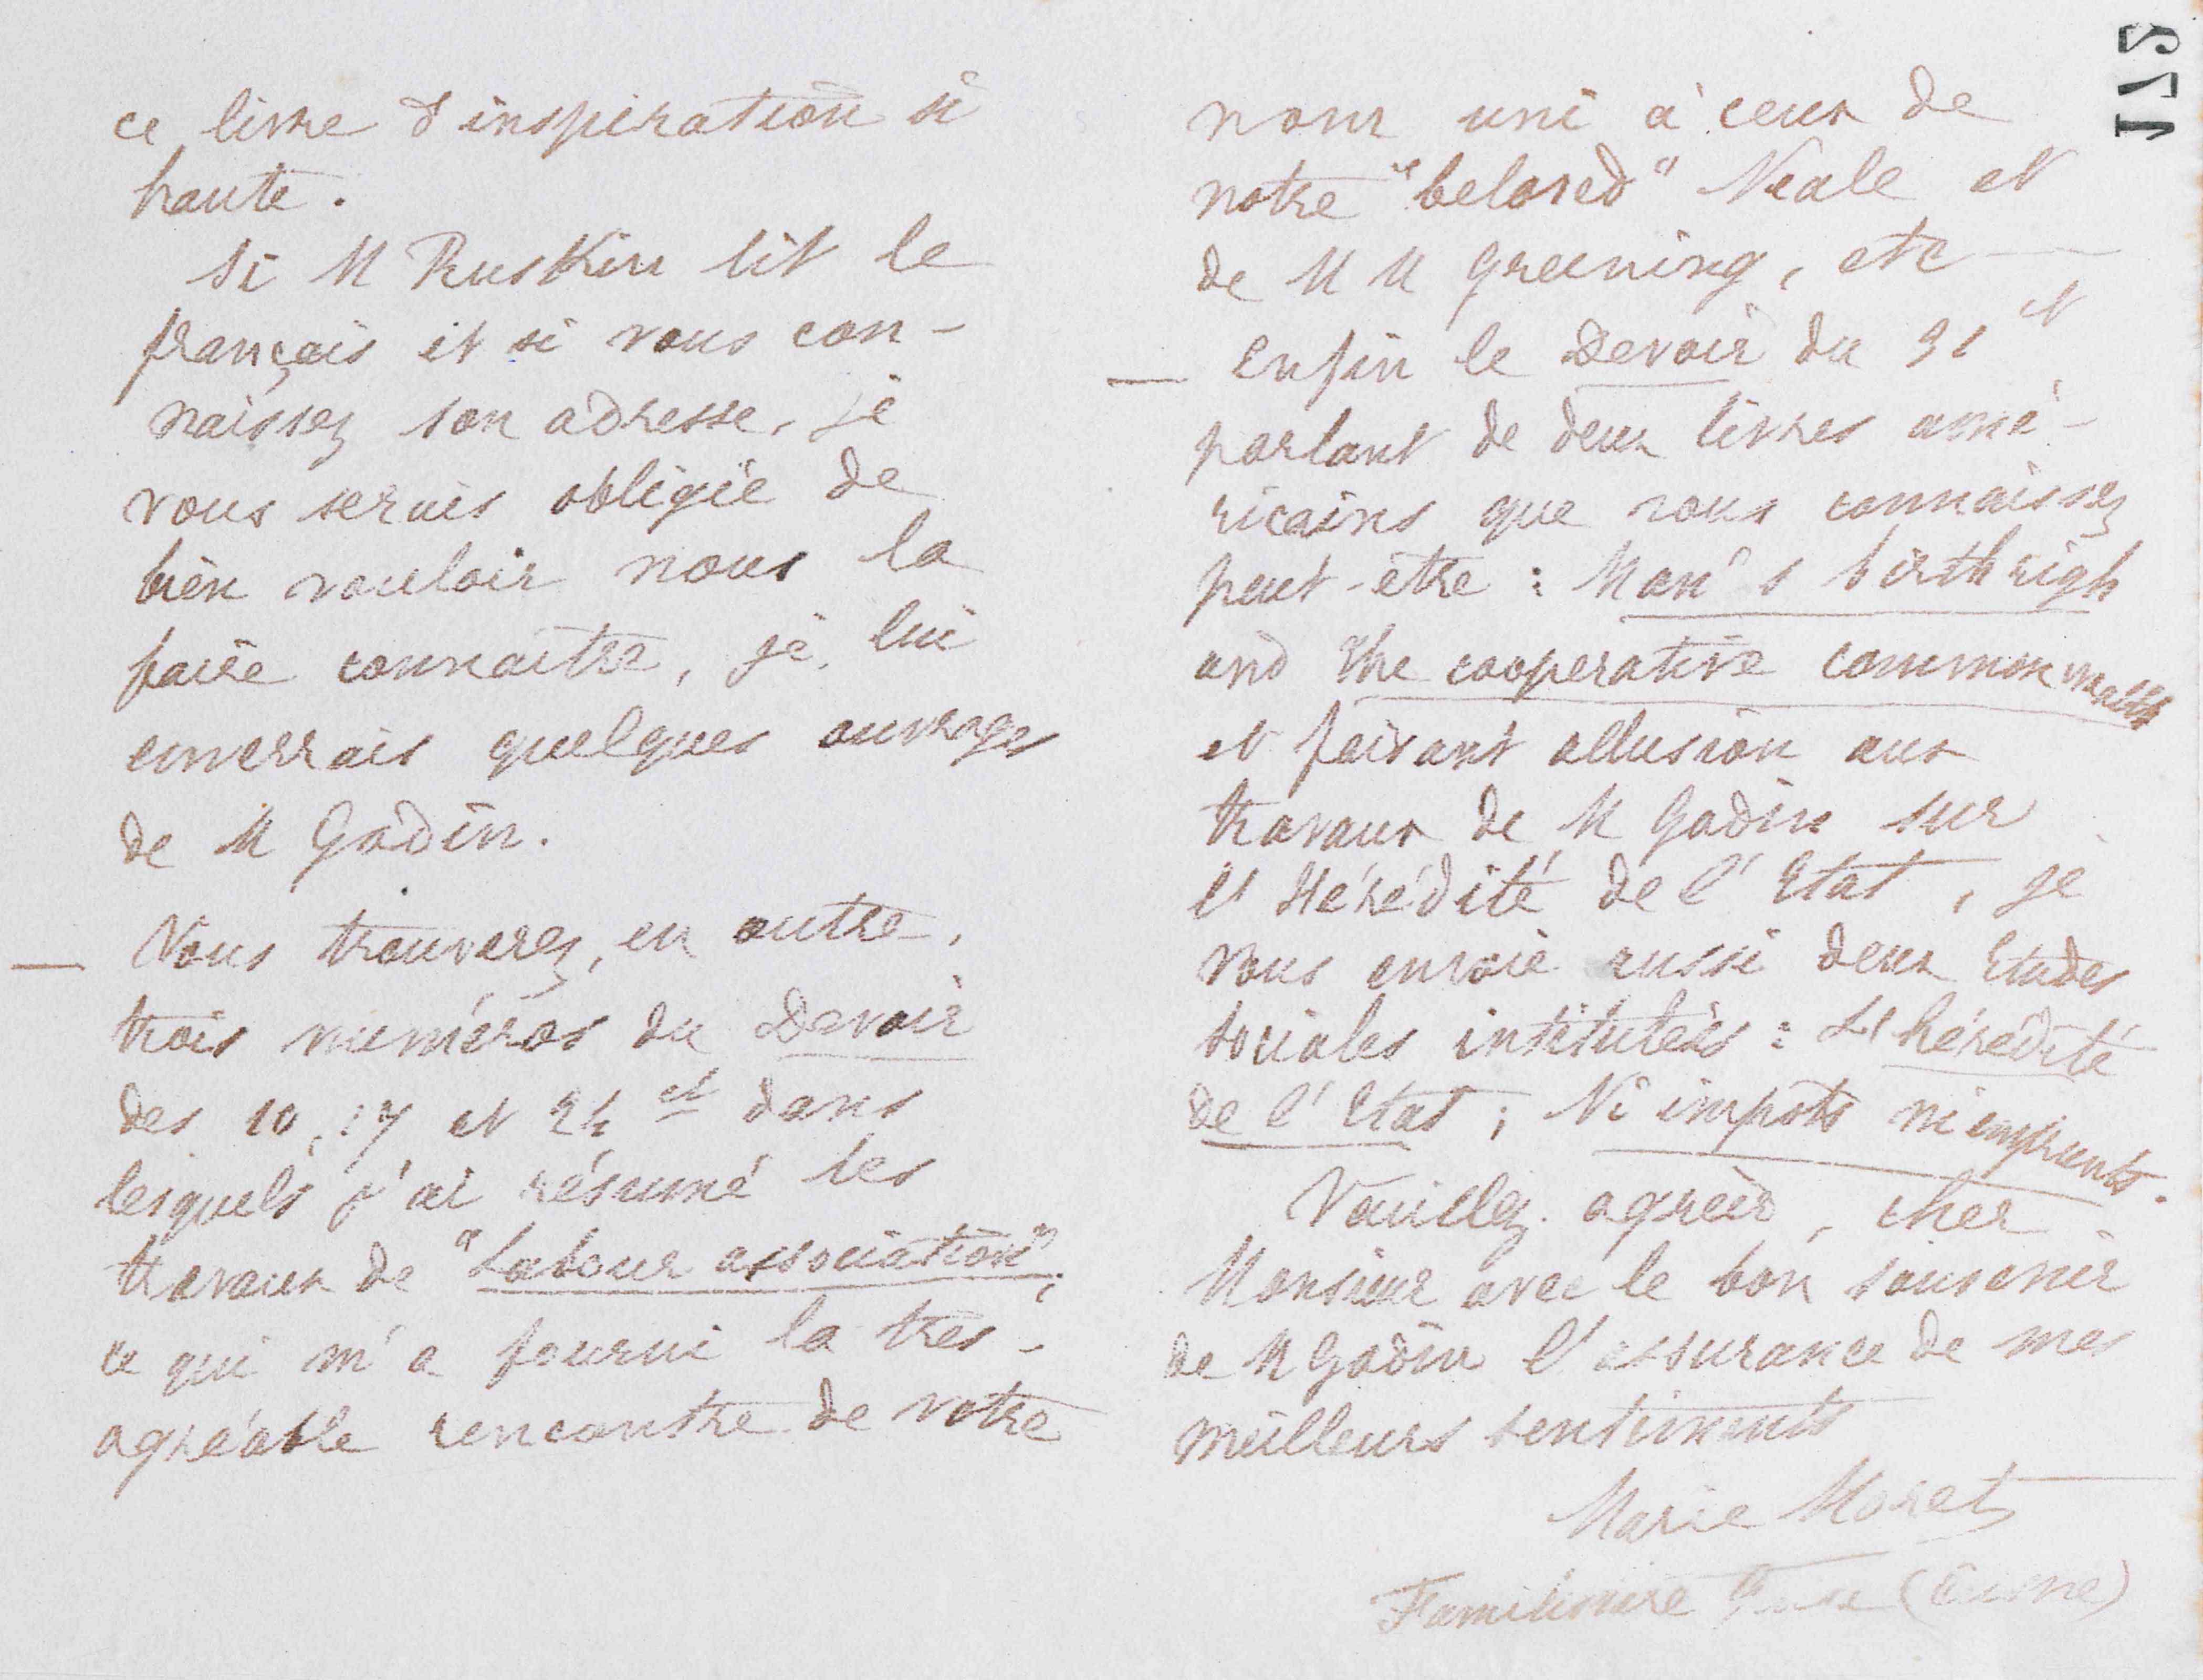 ce livre d'inspiration si
haute.
Si M Ruskin lit le
français et si vous con-
naissez son adresse, je
vous serais obligée de
bien vouloir nous la
faire connaitre, je lui
enverrais quelques ouvrages
de M Godin.
— Vous trouverez, en outre,
trois numéros du Devoir
des 10, 17 et 24 ct dans
lesquels j'ai résumé les
travaux de "Labour association",
ce qui m'a fourni la très-
agréable rencontre de votre
nom uni à ceux de
notre "beloved" Neale et
de M M Greening, etc —
— Enfin le Devoir du 31 ct
parlant de deux livres amé-
ricains que vous connaissez
peut-être : Man's birthrigh
and The cooperative commonwealth
et faisant allusion aux
travaux de M Godin sur
l'Hérédité de l'Etat, je
vous envoie aussi deux Etudes
sociales intitulées : L'hérédité
de l'Etat ; Ni impots ni emprunts.
Veuillez agréer, cher
Monsieur avec le bon souvenir
de M Godin l'assurance de mes
meilleurs sentiments
Marie Moret
Familistère Guise (Aisne)